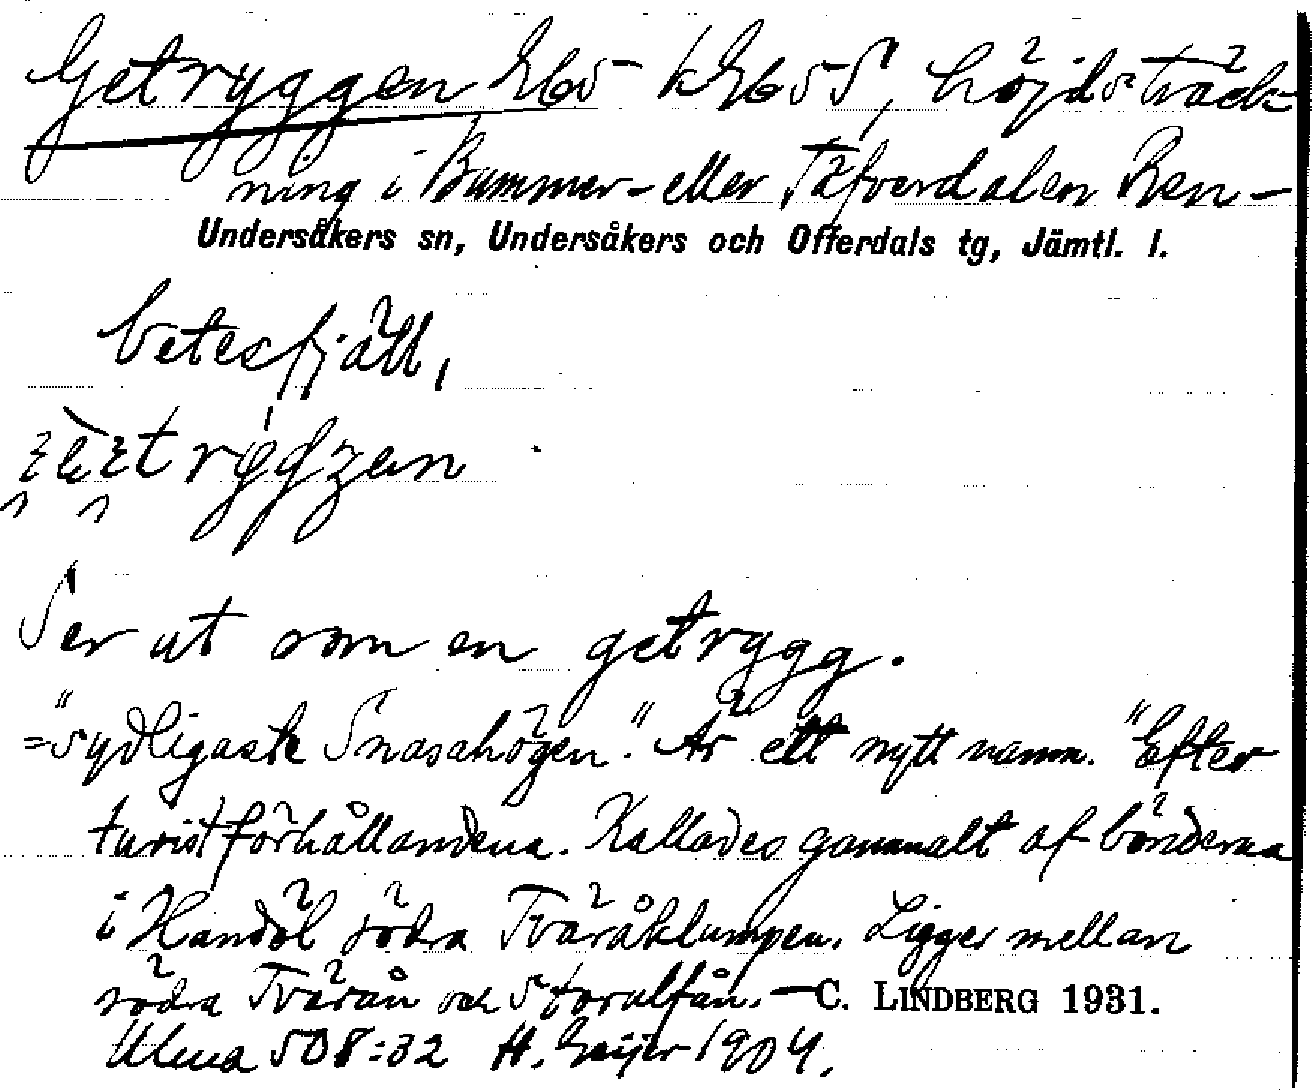 Getryggen kartbl. 55, höjdsträck-
ning i Bummer- eller Täfverdalen Ren-
Undersåkers sn, Undersåkers och Offerdals tg, Jämtl. l.
betesfjäll,
Ser ut som en getrygg.
= "sydligaste Snasahögen". Är ett nytt namn. "Efter
turistförhållandena. Kallades gammalt af bönderna
i Handöl södra Tväråklumpen. Ligger mellan
södra Tvärån och Storulfån. — C. LINDBERG 1931.
Ulma 508:32 H. Geijer 1904.